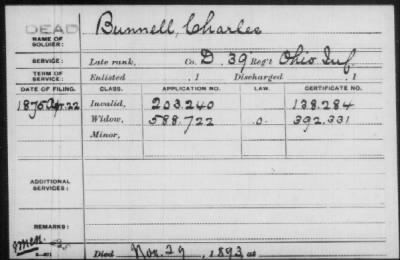 DEAD
NAME OF SOLDIER: Bunnell, Charles
SERVICE: Late rank, Co. D. 39 Reg't Ohio Inf.
TERM OF SERVICE: Enlisted , 1 Discharged , 1
DATE OF FILING. CLASS. APPLICATION NO. LAW. CERTIFICATE NO.
1876 Apr. 22 Invalid, 203.240 138.284
Widow, 588.722 .o. 392.331
Minor,
ADDITIONAL SERVICES:
REMARKS:
Died Nov. 29, 1893, at